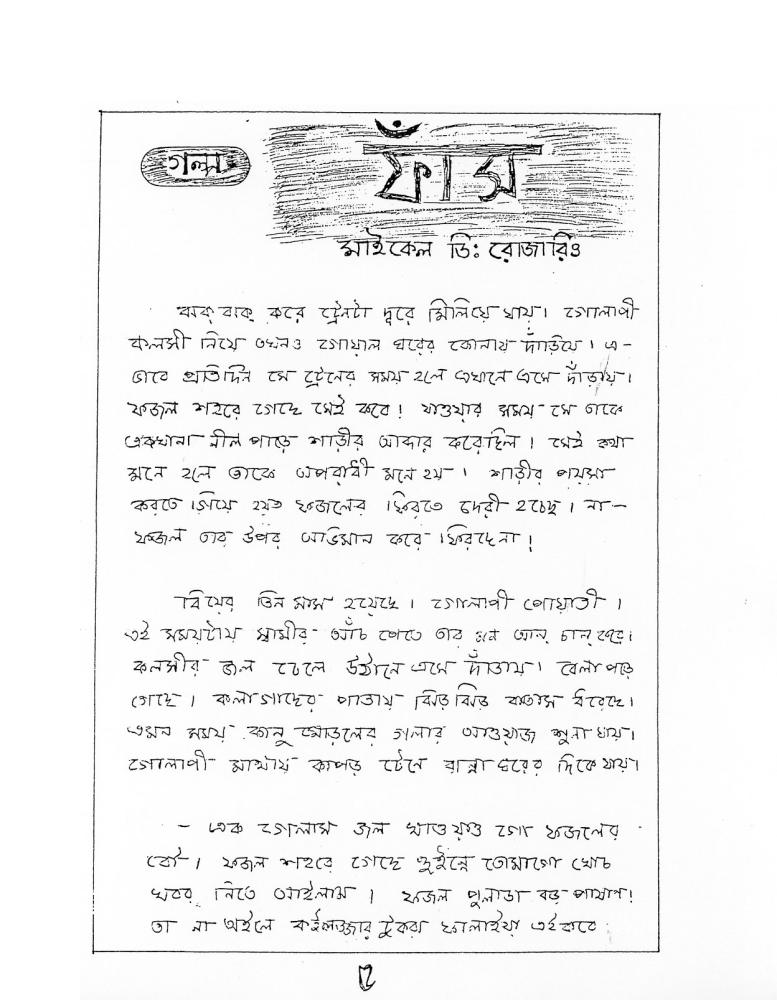 গল্প
ফাঁস
মাইকেল ডি: রোজারিও
ঝক্ ঝক্ করে ট্রেনটা দূরে মিলিয়ে যায়। গোলাপী
কলসী নিয়ে তখনও গোয়াল ঘরের কোনায় দাঁড়িয়ে। এ-
ভাবে প্রতিদিন সে ট্রেনের সময় হলে এখানে এসে দাঁড়ায়।
ফজল শহরে গেছে সেই কবে! যাওয়ার সময় সে তাকে
একখানা নীল পাড়ে শাড়ীর আব্দার করেছিল। সেই কথা
মনে হলে তাকে অপরাধী মনে হয়। শাড়ীর পয়সা
করতে গিয়ে হয়ত ফজলের ফিরতে দেরী হচ্ছে। না-
ফজল তার উপর অভিমান করে ফিরছেনা!
বিয়ের তিন মাস হয়েছে। গোলাপী পোয়াতী।
এই সময়টায় স্বামীর আঁচ পেতে তার মন আন্ চান্ করে।
কলসীর জল ঢেলে উঠানে এসে দাঁড়ায়। বেলা পড়ে
গেছে। কলাগাছের পাতায় ঝিড়িঝিড়ি বাতাস ধরেছে।
এমন সময় কানু মোড়লের গলার আওয়াজ শুনা যায়।
গোলাপী মাথায় কাপড় টেনে রান্না ঘরের দিকে যায়।
- এক গেলাস জল খাওয়াও গো ফজলের
বৌ। ফজল শহরে গেছে শুইন্নে তোমাগো খোঁচ
খবর নিতে আইলাম। ফজল পুলাডা বড় পাষাণ!
তা না অইলে কইলজার টুকরা ফালাইয়া এইভাবে